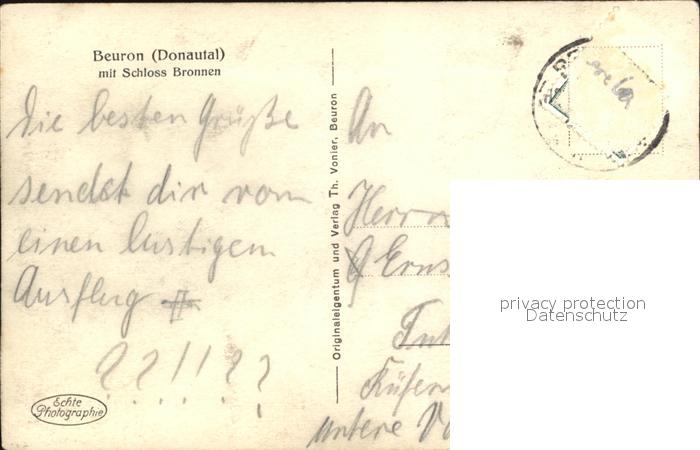 Beuron (Donautal)
mit Schloss Bronnen
Die besten Grüße
sendet dir vom
einen lustigen
Ausflug
??!!??
Echte
Photographie
Originaleigentum und Verlag Th. Vonier, Beuron
An
Herrn
Ernst
Küfer
untere
privacy protection
Datenschutz